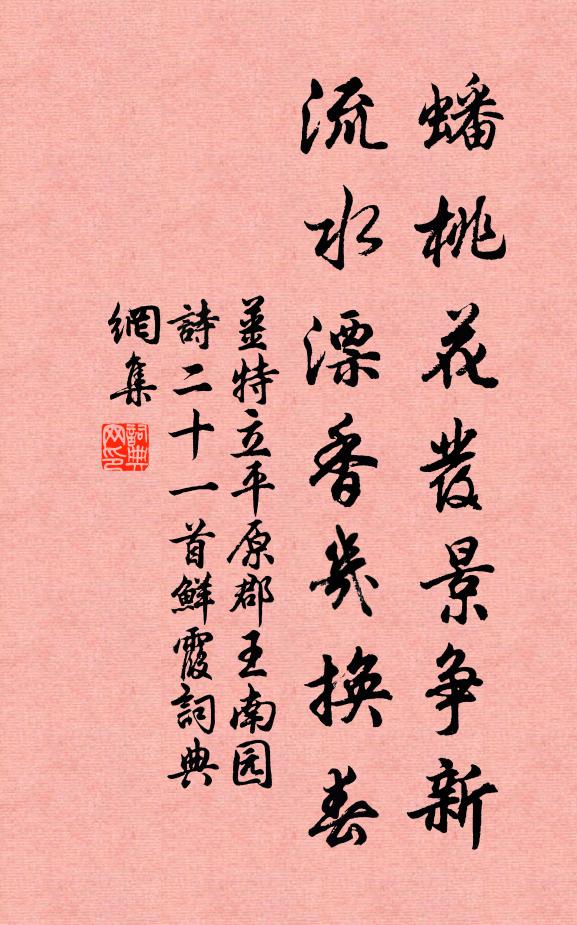 蟠桃花發景争新
流水漂香幾換春
姜特立平原郡王南园
詩二十一首鮮霞詞典
網集
詞典
网印